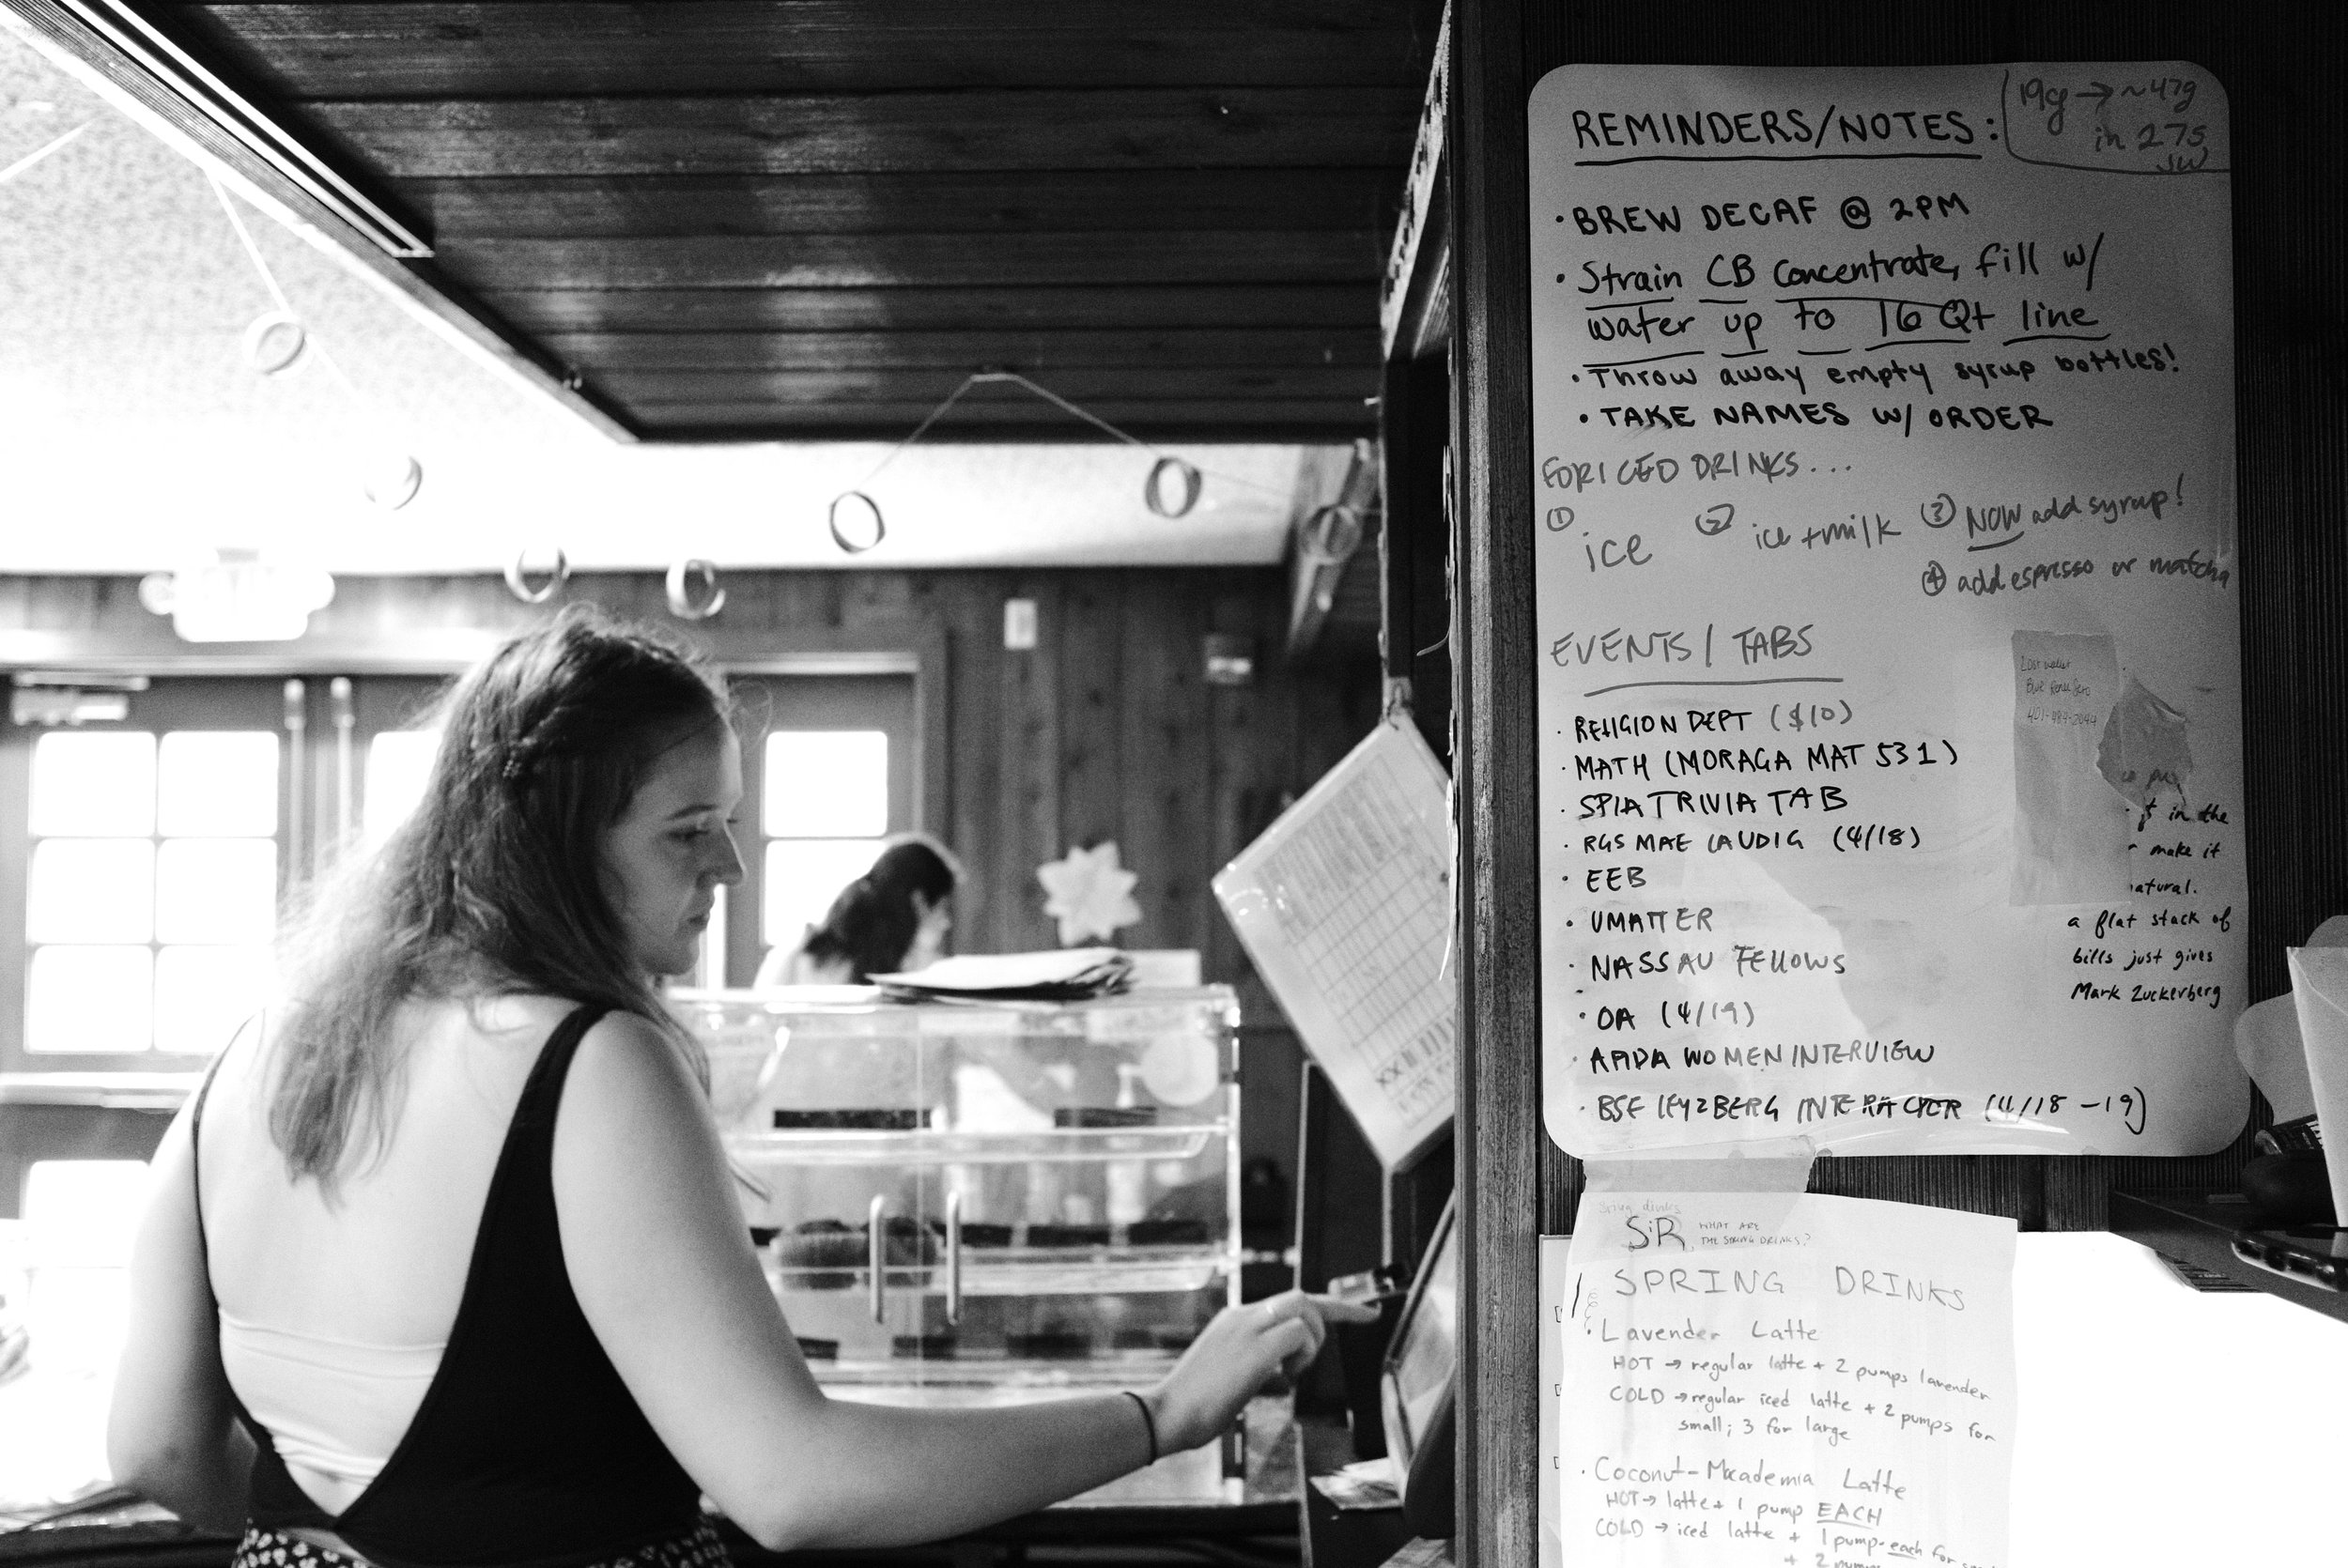 REMINDERS/NOTES:
19g → ~47g
in 27s
• BREW DECAF @ 2PM
• Strain CB concentrate, fill w/
water up to 16 Qt line
• Throw away empty syrup bottles!
• TAKE NAMES W/ ORDER
FOR ICED DRINKS...
① ice
② ice + milk
③ NOW add syrup!
④ add espresso or matcha
EVENTS / TABS
• RELIGION DEPT ($10)
• MATH (MORAGA MAT 531)
• SPIA TRIVIA TAB
• RGS MAE (4/18)
• EEB
• UMATTER
• NASSAU FELLOWS
• OA (4/19)
• WOMEN INTERVIEW
• BSE (4/18 - 19)
Lost wallet
in the
make it
atural.
a flat stack of
bills just gives
Mark Zuckerberg
Spring drinks
SiR WHAT ARE
THE SPRING DRINKS?
SPRING DRINKS
• Lavender Latte
HOT → regular latte + 2 pumps lavender
COLD → regular iced latte + 2 pumps for
small; 3 for large
• Coconut-Macademia Latte
HOT → latte + 1 pump EACH
COLD → iced latte + 1 pump each for
+ 2 pumps